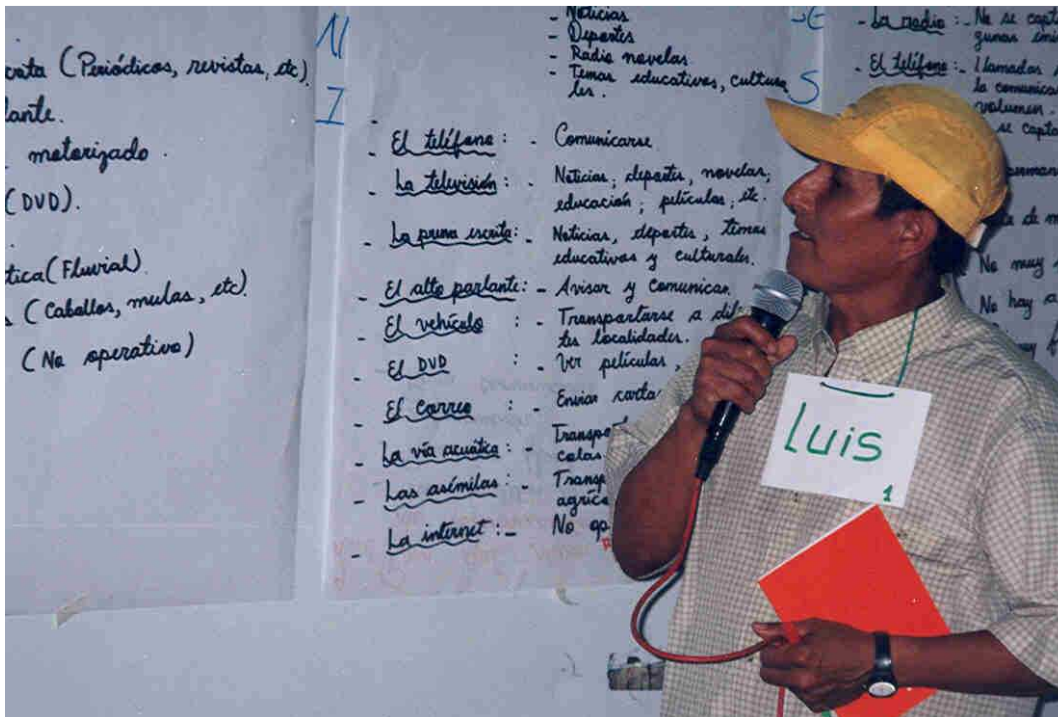 (Periódicos, revistas, etc)
lante.
motorizado.
(DVD).
tica (Fluvial)
(Caballos, mulas, etc).
(No operativo)
N
I
- Noticias
- Deportes
- Radio novelas
- Temas educativos, cultura
les.
- El teléfono: - Comunicarse
- La televisión: - Noticias, deportes, novelas,
educación, películas, etc.
- La prensa escrita: - Noticias, deportes, temas
educativos y culturales.
- El alto parlante: - Avisar y Comunicar
- El vehículo : - Transportarse a dife
tes localidades.
- El DVD : - Ver películas,
- El Correo : - Enviar carta
- La vía acuática: - Transpo
colas
- Las asémilas: - Transp
agríco
- La internet: - No op
S
- La radio: - No se capt
gunas emi
- El teléfono: - Llamadas
la comunica
volumen.
se capta
perman
de m
No muy
No hay
Luis
1